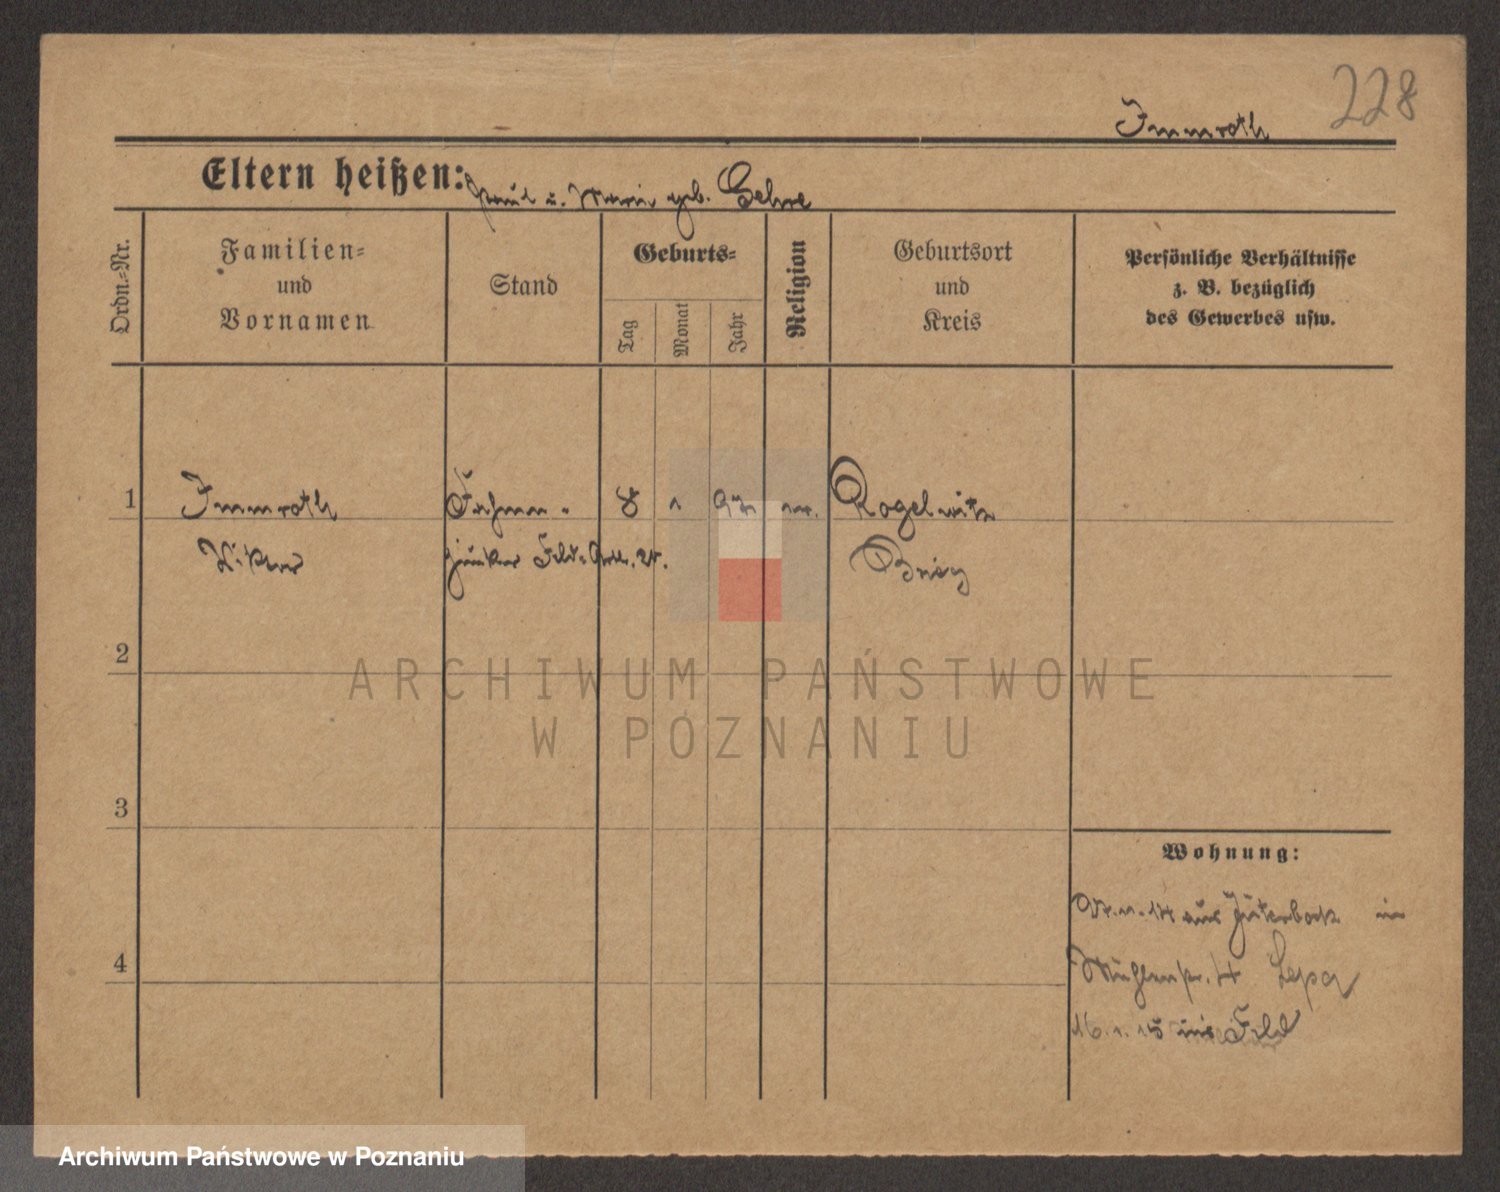 228
Immroth
Eltern heißen: Paul u. Marie geb. Gehre
Ordn.=Nr.
Familien=
und
Vornamen
Stand
Geburts=
Tag
Monat
Jahr
Religion
Geburtsort
und
Kreis
Persönliche Verhältnisse
z. B. bezüglich
des Gewerbes usw.
1 Immroth Fahnen- 8 1 Rogelwitz
Viktor junker Feld-Artl. Brieg
2
3
4
Wohnung:
aus Jüterbock in
Mühlenstr. 4
16. 1. 15 ins Feld
ARCHIWUM PAŃSTWOWE
W POZNANIU
Archiwum Państwowe w Poznaniu